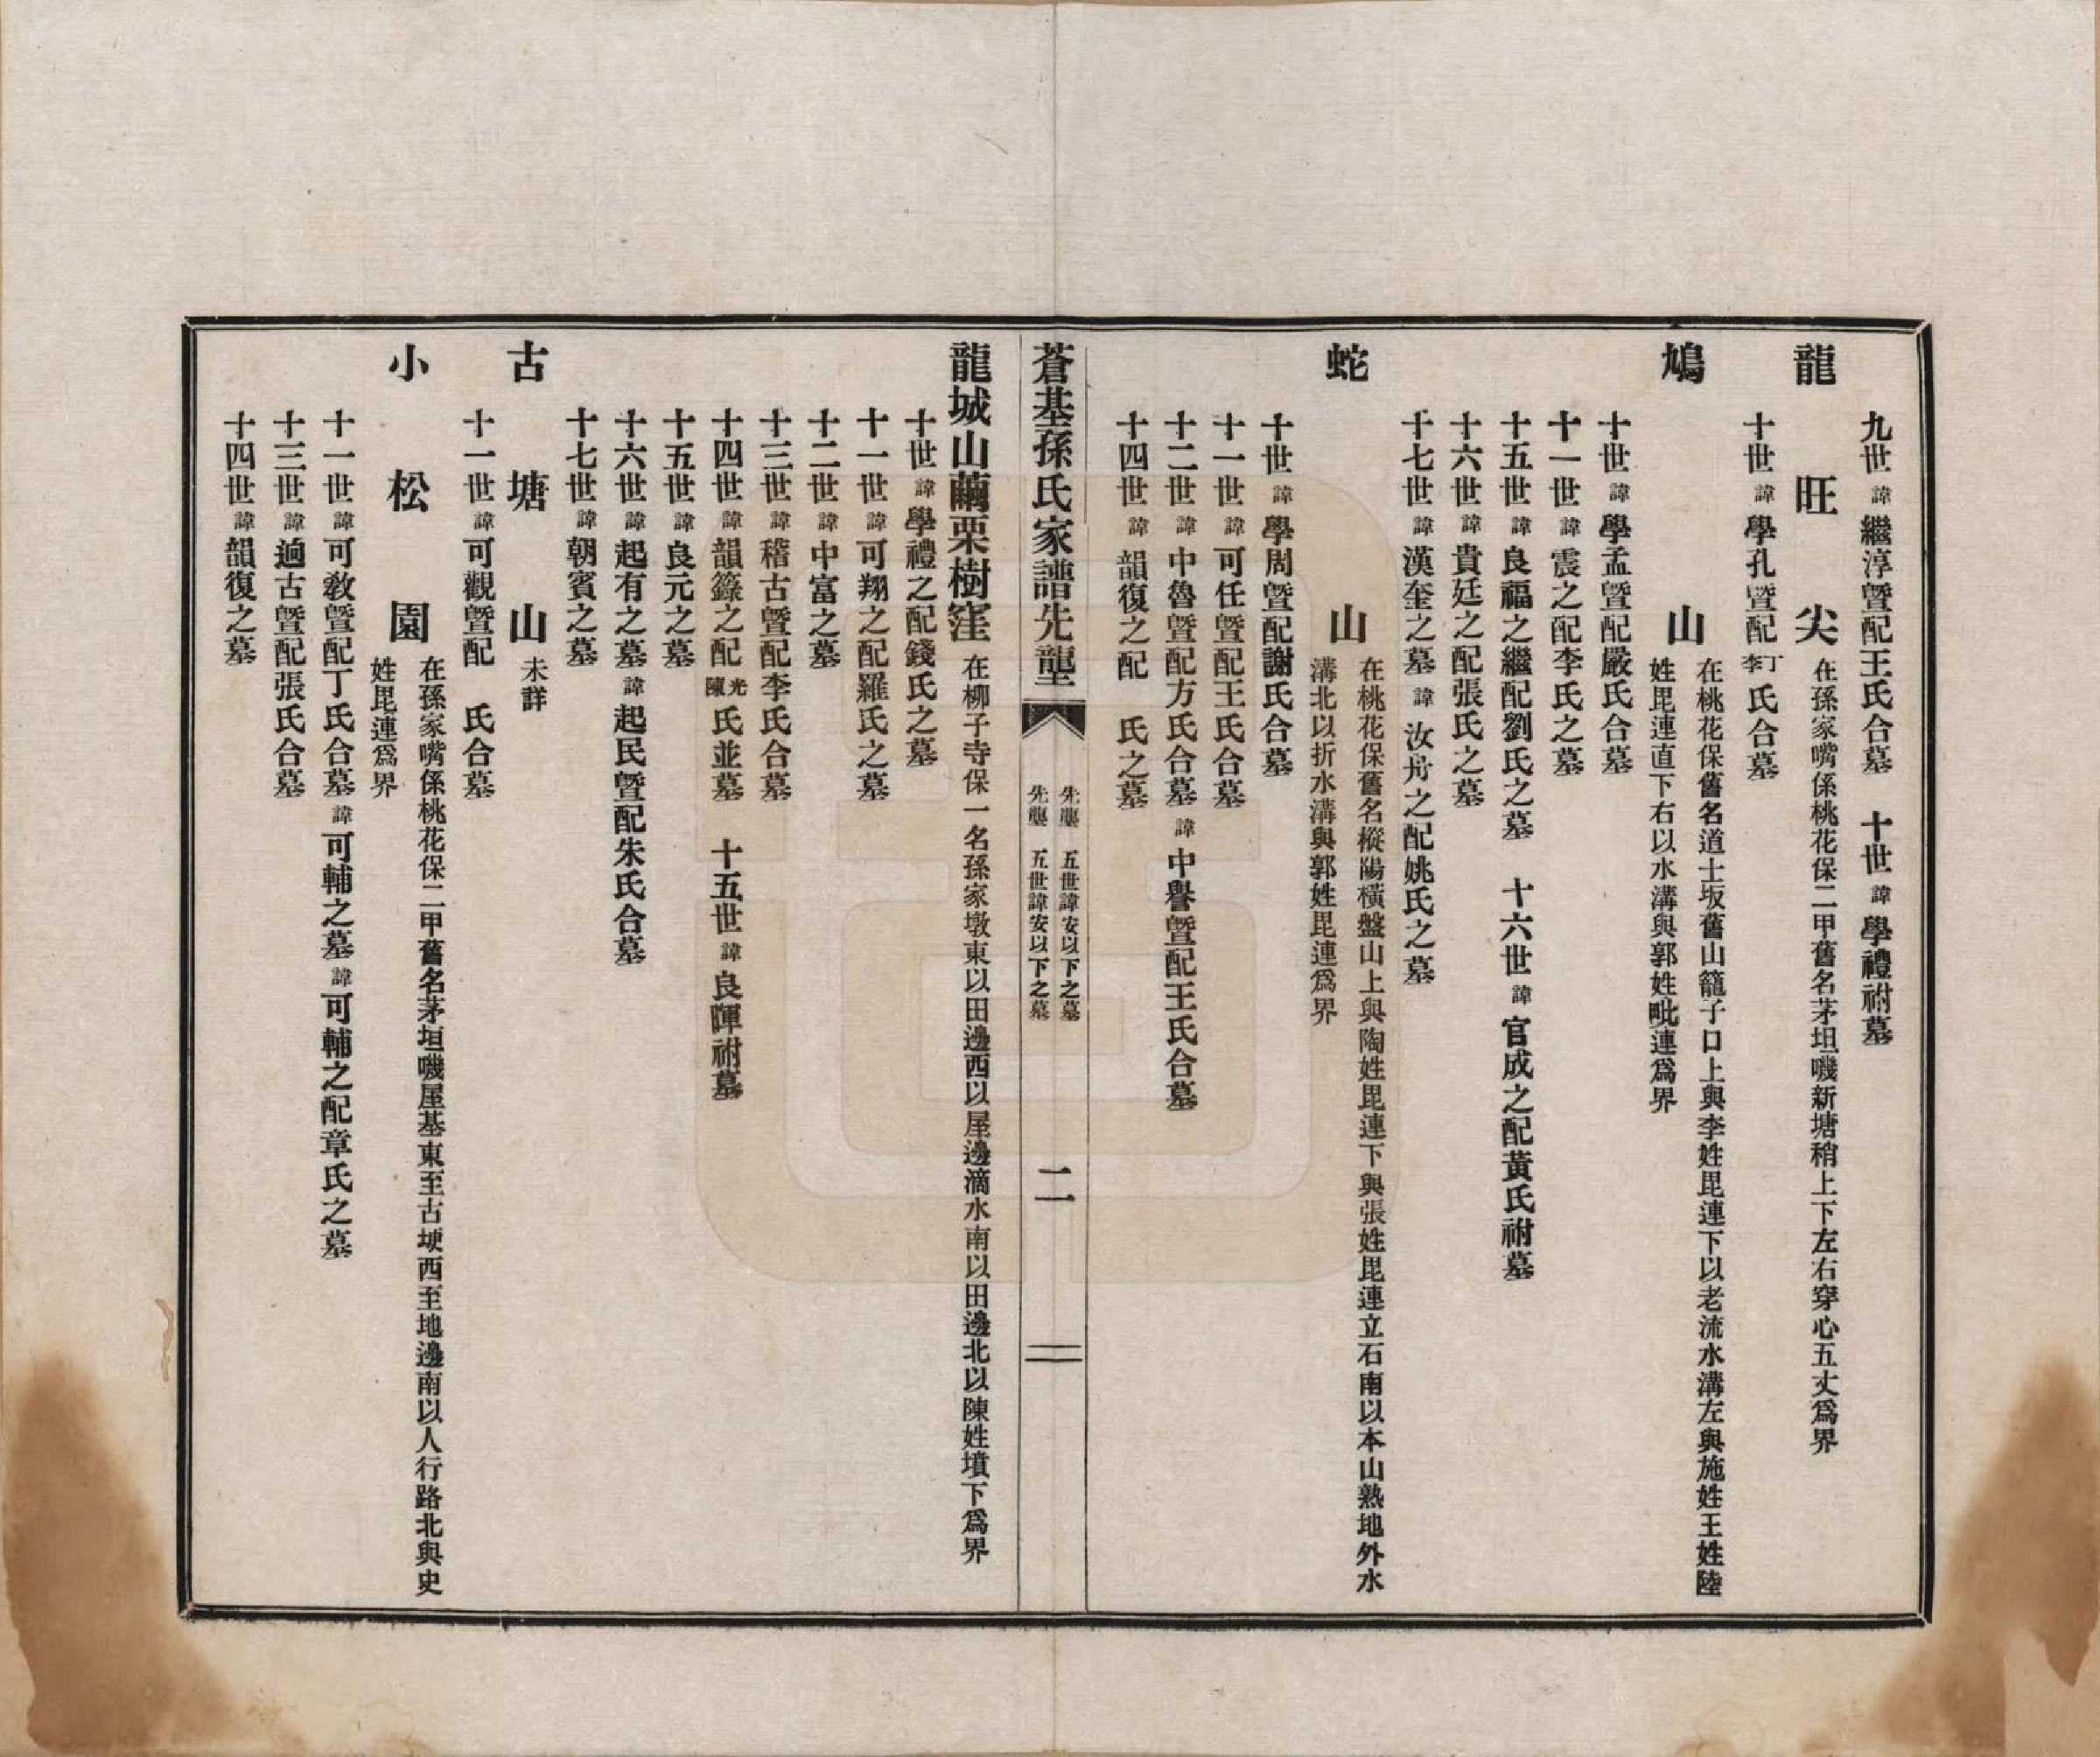 九世諱繼淳暨配王氏合墓　十世諱學禮祔墓
龍旺尖　在孫家嘴係桃花保二甲舊名茅坦磯新塘稍上下左右穿心五丈爲界
十世諱學孔暨配丁李氏合墓
鳩山　在桃花保舊名道士坂舊山籠子口上與李姓毘連下以老流水溝左與施姓王姓陸
姓毘連直下右以水溝與郭姓毗連爲界
十世諱學孟暨配嚴氏合墓
十一世諱震之配李氏之墓
十五世諱良福之繼配劉氏之墓　十六世諱官成之配黃氏祔墓
十六世諱貴廷之配張氏之墓
十七世諱漢奎之墓諱汝舟之配姚氏之墓
蛇山　在桃花保舊名樅陽橫盤山上與陶姓毘連下與張姓毘連立石南以本山熟地外水
溝北以折水溝與郭姓毘連爲界
十世諱學周暨配謝氏合墓
十一世諱可任暨配王氏合墓
十二世諱中魯暨配方氏合墓諱中譽暨配王氏合墓
十四世諱韻復之配　氏之墓
蒼基孫氏家譜先壟
先壟　五世諱安以下之墓
先壟　五世諱安以下之墓
二
龍城山繭栗樹窪　在柳子寺保一名孫家墩東以田邊西以屋邊滴水南以田邊北以陳姓墳下爲界
十世諱學禮之配錢氏之墓
十一世諱可翔之配羅氏之墓
十二世諱中富之墓
十三世諱稽古暨配李氏合墓
十四世諱韻籙之配光陳氏並墓　十五世諱良暉祔墓
十五世諱良元之墓
十六世諱起有之墓諱起民暨配朱氏合墓
十七世諱朝賓之墓
古塘山　未詳
十一世諱可觀暨配　氏合墓
小松園　在孫家嘴係桃花保二甲舊名茅垣磯屋基東至古埂西至地邊南以人行路北與史
姓毘連爲界
十一世諱可敎暨配丁氏合墓諱可輔之墓諱可輔之配章氏之墓
十三世諱逈古暨配張氏合墓
十四世諱韻復之墓